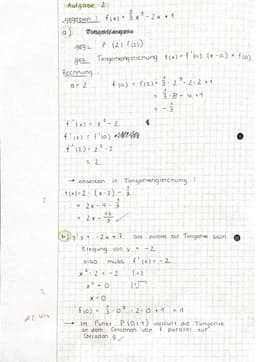 Aufgabe 2:
gegeben: f(x) = 1/3 x³ - 2x + 1
a)
geg.: P (2 | f(2))
ges.: Tangentengleichung t(x) = f'(a) (x-a) + f(a)
Rechnung:
a = 2 f(a) = f(2) = 1/3 · 2³ - 2 · 2 + 1
= 1/3 · 8 - 4 + 1
= - 1/3
f'(x) = x² - 2
f'(x) = f'(a)
f'(2) = 2² - 2
= 2
→ einsetzen in Tangentengleichung:
t(x) = 2 · (x-2) - 1/3
= 2x - 4 - 1/3
= 2x - 13/3
b) g: y = -2x + 7 soll parallel zur Tangente sein
Steigung von y = -2
also muss f'(x) = -2
x² - 2 = -2 |+2
x² = 0 |√
x = 0
f(0) = 1/3 · 0³ - 2 · 0 + 1 = 1
→ Im Punkt P(0|1) verläuft die Tangente
an dem Graphen von f parallel zur
Geraden g.